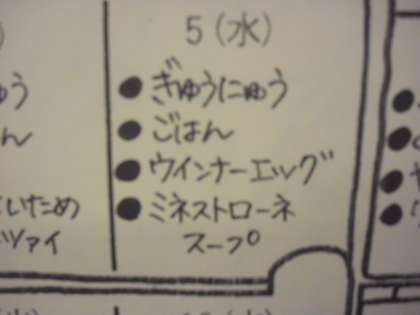 5(水)
●ぎゅうにゅう
●ごはん
●ウインナーエッグ
●ミネストローネ
スープ
ゅう
ん
いため
ツァイ